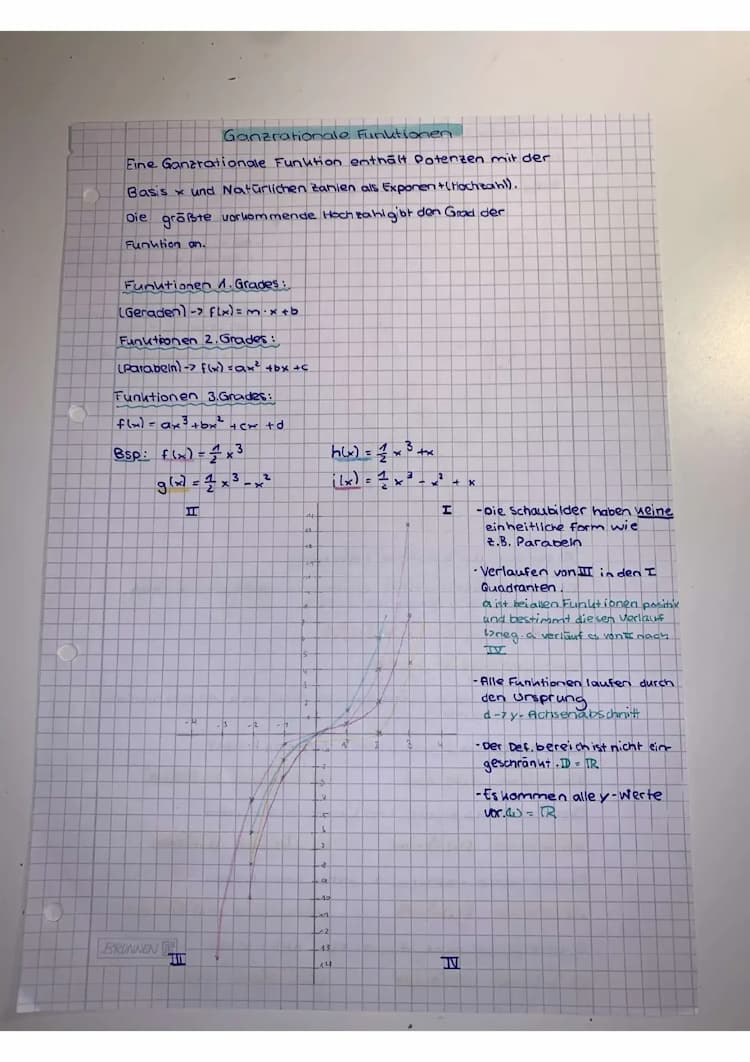 Ganzrationale Funktionen
Eine Ganzrationale Funktion enthält Potenzen mit der
Basis x und Natürlichen Zahlen als Exponent (Hochzahl).
Die größte vorkommende Hochzahl gibt den Grad der
Funktion an.
Funktionen 1. Grades:
(Geraden) -> f(x) = m·x+b
Funktionen 2. Grades:
(Parabeln) -> f(x) = ax² + bx + c
Funktionen 3. Grades:
f(x) = ax³ + bx² + cx + d
Bsp: f(x) = 1/2 x³
h(x) = 1/2 x³ + x
g(x) = 1/2 x³ - x²
i(x) = 1/2 x³ - x² + x
II
I
- Die Schaubilder haben keine
einheitliche Form wie
z.B. Parabeln
- Verlaufen von III in den I
Quadranten.
a ist bei allen Funktionen positiv
und bestimmt diesen Verlauf
b neg. a verläuft es von II nach
IV
- Alle Funktionen laufen durch
den Ursprung
d -> y-Achsenabschnitt
- Der Def. bereich ist nicht ein-
geschränkt. D = R
- Es kommen alle y-Werte
vor. W = R
BRUNNEN
III
IV